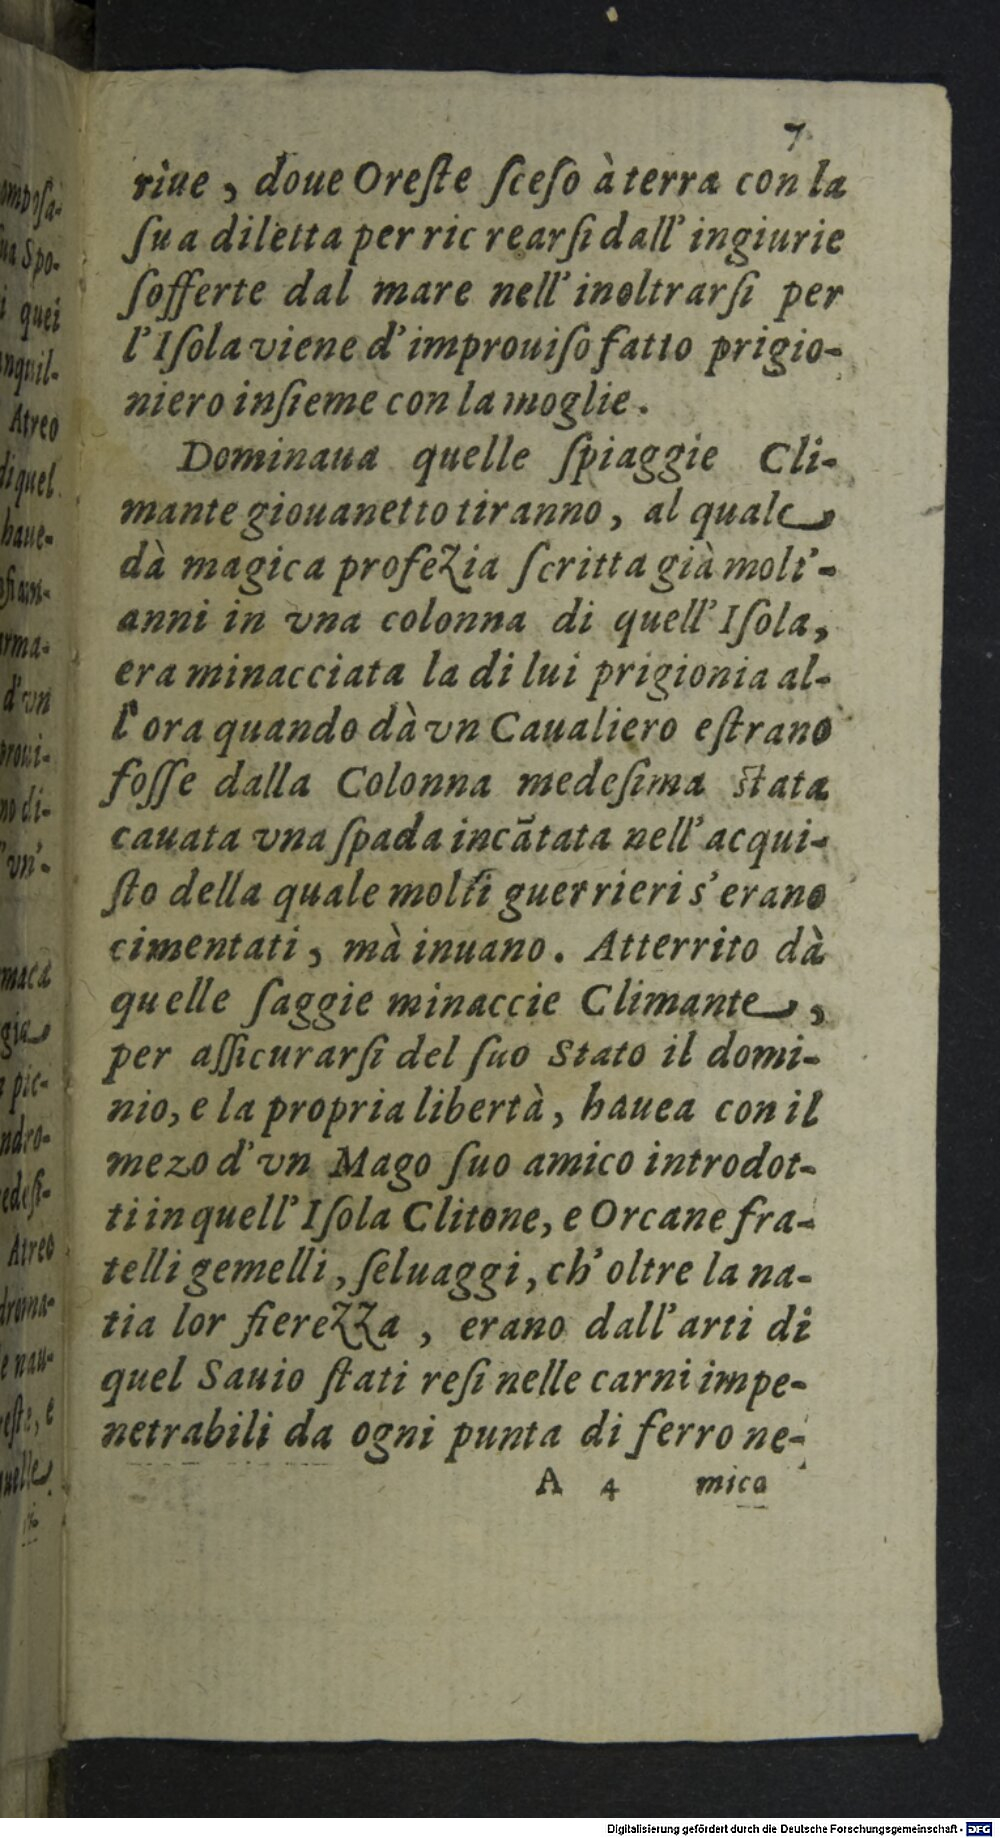 7
riue, doue Oreſte ſceſo à terra con la
ſua diletta per ricrearſi dall'ingiurie
ſofferte dal mare nell'inoltrarſi per
l'Iſola viene d'improuiſo fatto prigio-
niero inſieme con la moglie.
Dominaua quelle ſpiaggie Cli-
mante giouanetto tiranno, al quale
dà magica profezia ſcritta già molt'-
anni in vna colonna di quell'Iſola,
era minacciata la di lui prigionia al-
l'ora quando dà vn Caualiero eſtrano
foſſe dalla Colonna medeſima ſtata
cauata vna ſpada incãtata nell'acqui-
ſto della quale molti guerrieri s'erano
cimentati, mà inuano. Atterrito dà
quelle ſaggie minaccie Climante,
per aſſicurarſi del ſuo Stato il domi-
nio, e la propria libertà, hauea con il
mezo d'vn Mago ſuo amico introdot-
ti in quell'Iſola Clitone, e Orcane fra-
telli gemelli, ſeluaggi, ch'oltre la na-
tia lor fierezza, erano dall'arti di
quel Sauio ſtati reſi nelle carni impe-
netrabili da ogni punta di ferro ne-
A 4 mica
Digitalisierung gefördert durch die Deutsche Forschungsgemeinschaft - DFG